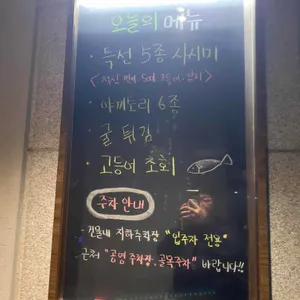 오늘의 메뉴
· 특선 5종 사시미
· 야끼토리 6종
· 굴 튀김
· 고등어 초회
주차 안내
- 건물내 지하주차장 "입주자 전용"
- 근처 "공영 주차장, 골목주차" 바랍니다!!